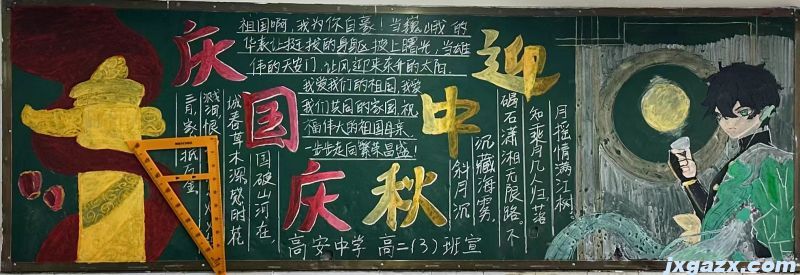 庆国庆
迎中秋
祖国啊,我为你自豪!当巍峨的
华表让挺拔的身躯披上曙光,当雄
伟的天安门,让风迎来东升的太阳.
我爱我们的祖国,我爱
我们共同的家园,祝
福伟大的祖国母亲
一步步走向繁荣昌盛!
国破山河在,
城春草木深.感时花
溅泪,恨
三月,家 抵万金.
斜月沉
沉藏海雾,
碣石潇湘无限路.不
知乘月几人归,落
月摇情满江树.
高安中学 高二(3)班宣
jxgazx.com